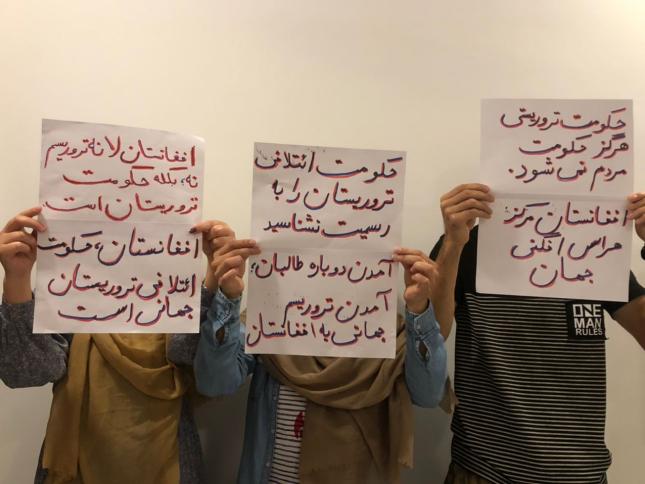 حکومت تروریستی
هرگز حکومت
مردم نمی شود.
افغانستان مرکز
هراس افگنی
جهان
ONE
MAN
RULES
حکومت ائتلافی
تروریستان را به
رسمیت نشناسید
آمدن دوباره طالبان،
آمدن تروریسم
جهانی به افغانستان
افغانستان لانه تروریسم
نه، بلکه حکومت
تروریستان است.
افغانستان، حکومت
ائتلافی تروریستان
جهانی است